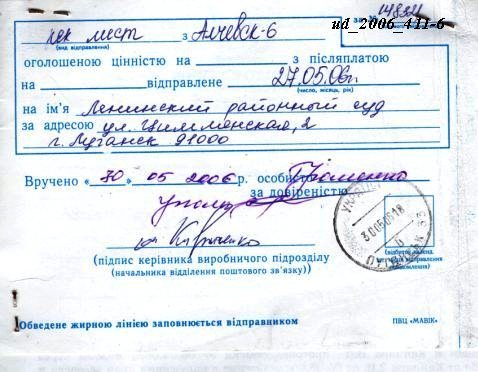 14834
ud_2006_411-6
лист з Алчевск-6
(вид відправлення)
оголошеною цінністю на з післяплатою
на відправлене 27.05.06г.
(число, місяць, рік)
на ім'я Ленинский районный суд
за адресою ул. Цимлянская, 2
г. Луганск 91000
Вручено « 30 » 05 2006 р. особисто
за довіреністю
(підпис керівника виробничого підрозділу
(начальника відділення поштового зв'язку))
Обведене жирною лінією заповнюється відправником
ПВЦ «МАВІК»